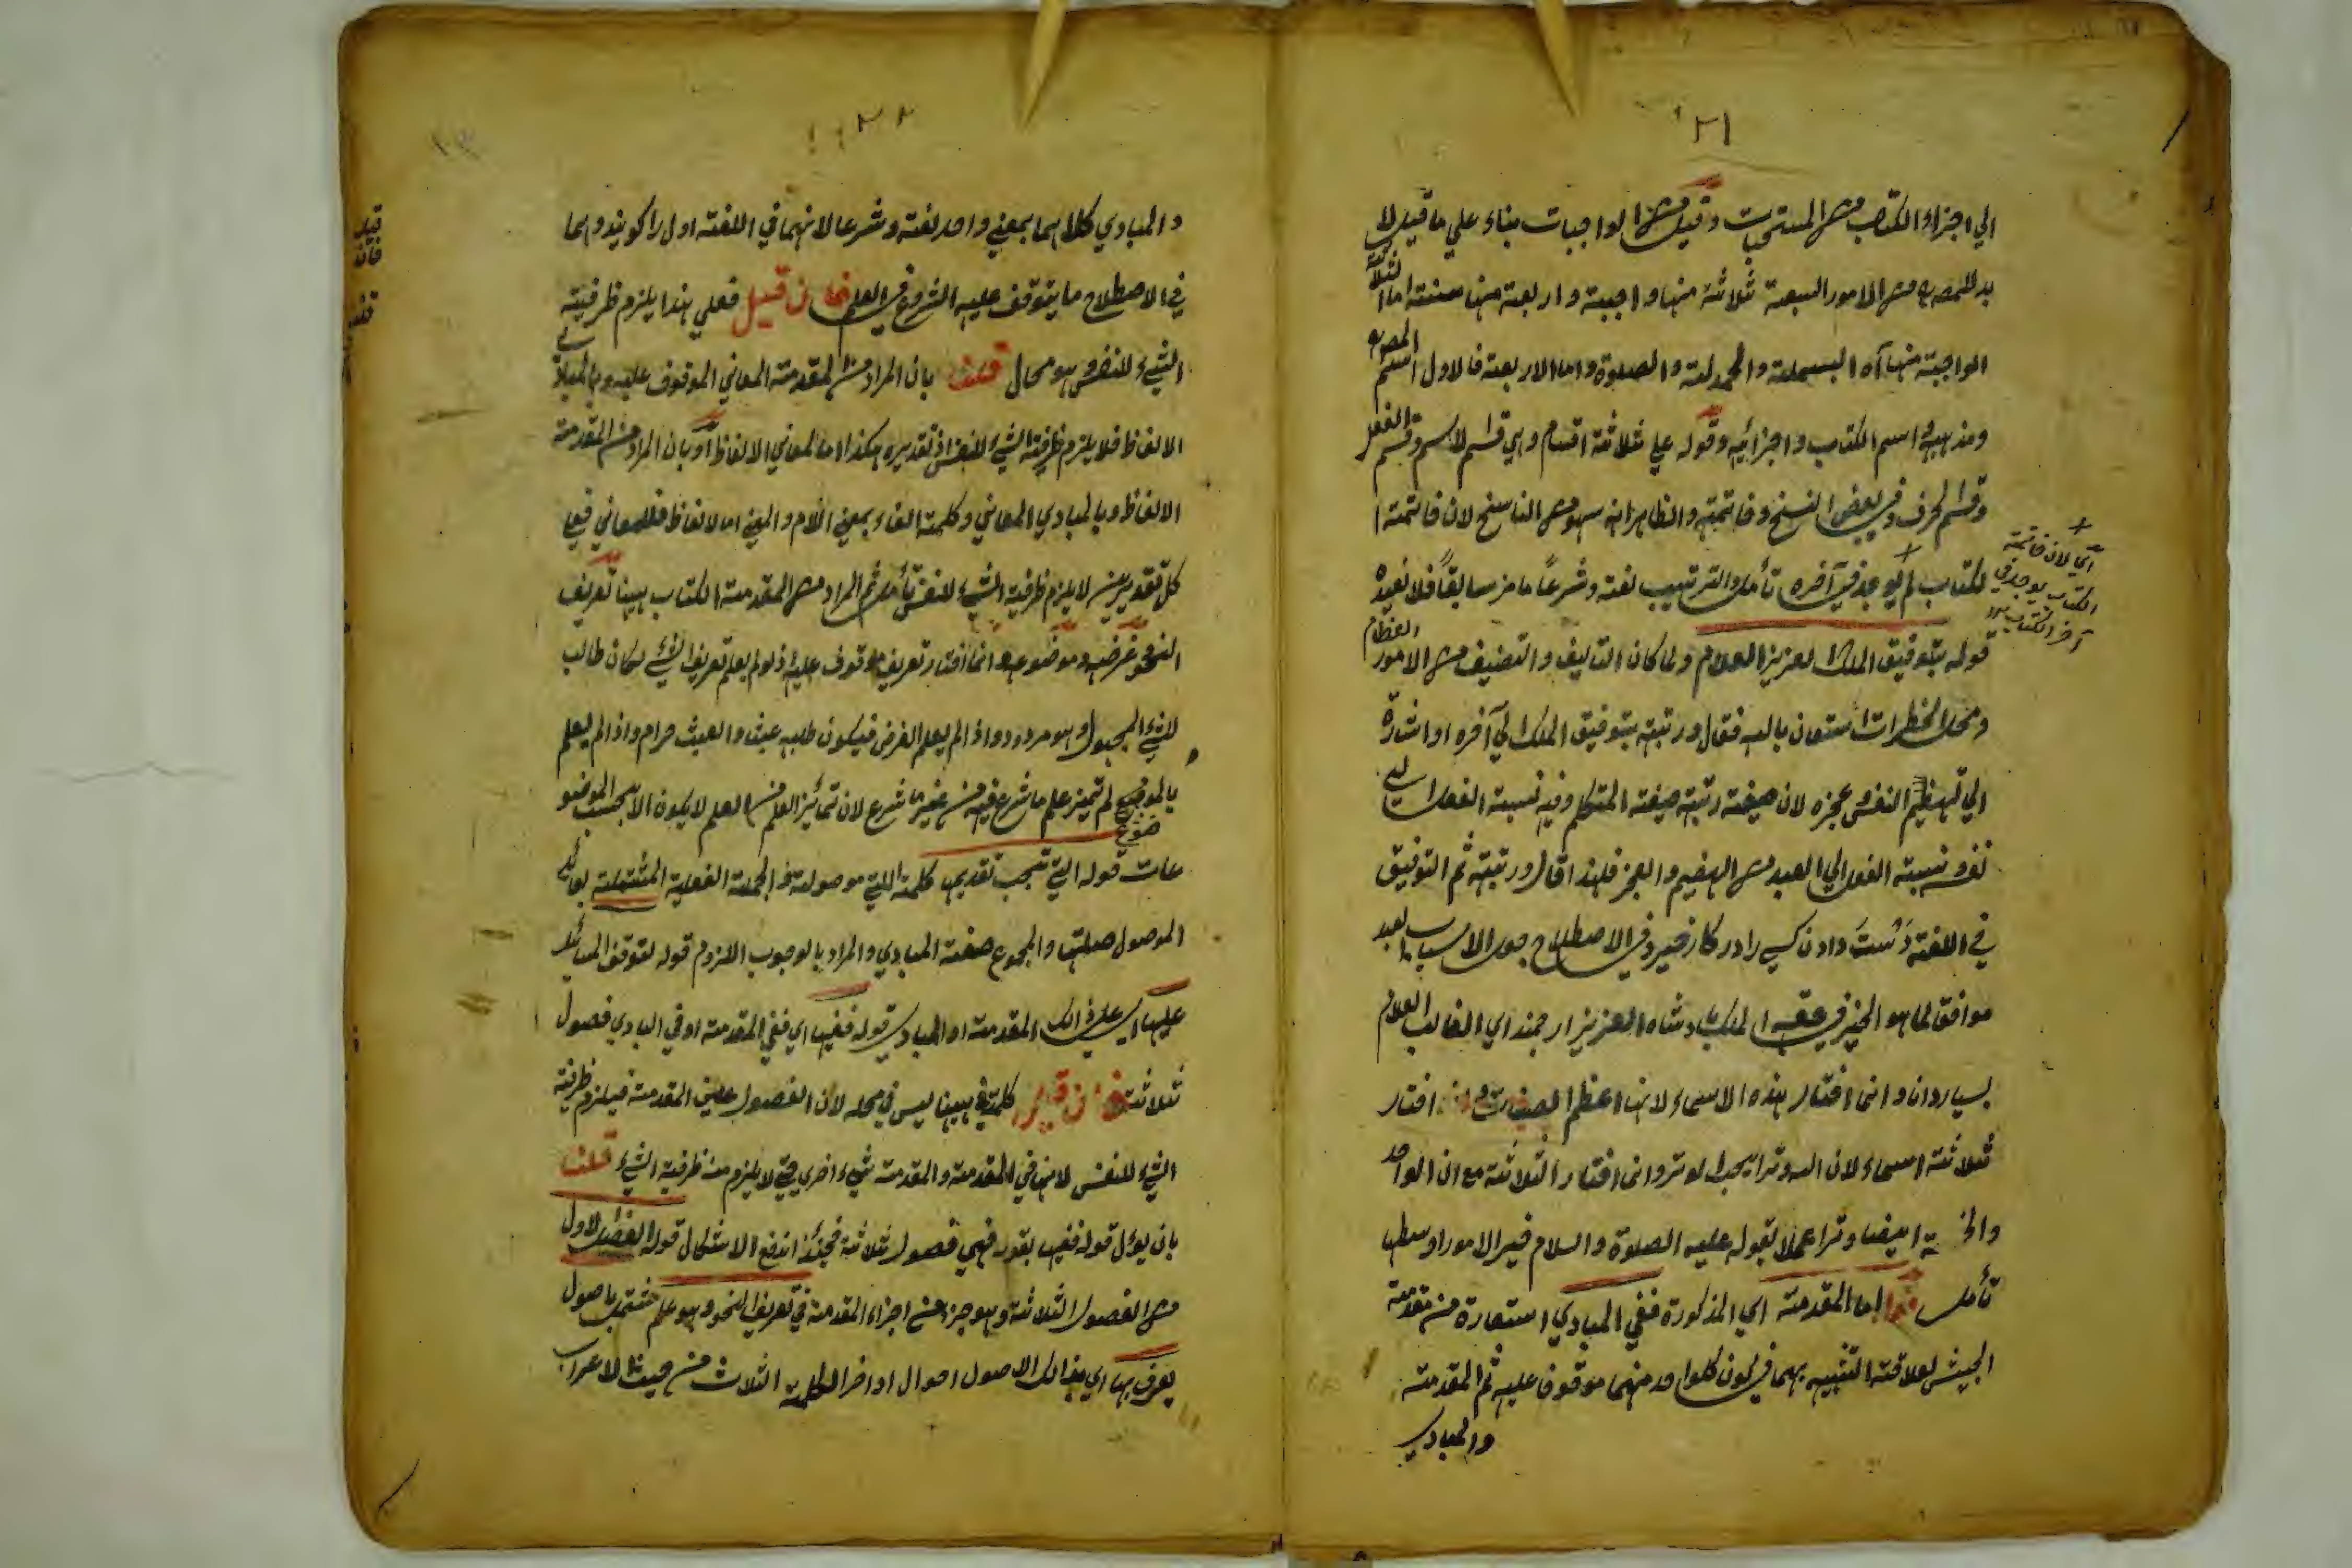 ٢١
الي اجزاء الكتاب من المستحبات وقيل من الواجبات بناء علي ما قيل لا
بد للمصنف من الامور السبعة ثلاثة منها واجبة واربعة منها سنة اما الثلاثة
الواجبة منها آه البسملة والحمدلة والصلوة واما الاربعة فالاول اسم المصنف
ومذهبه واسم الكتاب واجزائه وقوله علي ثلاثة اقسام وهي قسم الاسم وقسم الفعل
وقسم الحرف وفي بعض النسخ وخاتمة والظاهر انه سهو من الناسخ لان خاتمة ا
لكتاب لم يوجد في آخره تأمل والترتيب لغة وشرعاً ما مر سابقاً فلا نعيده
اي لان خاتمة
الكتاب يوجد في
آخر الكتاب
قوله بتوفيق الملك العزيز العلام ولما كان التاليف والتصنيف من الامور العظام
ومحل الخطرات استعان بالله فقال ورتبته بتوفيق الملك الي آخره او اشارة
الي النفس وعجزه لان صيغة رتبته صيغة المتكلم وفيه نسبة الفعل الي
نفسه ونسبة الفعل الي العبد من الهضم والعجز فلهذا قال ورتبته ثم التوفيق
في اللغة دست دادن كسي را در كار خير وفي الاصطلاح جعل الاسباب العبد
موافقا لما هو الخير في حقه الملك بادشاه العزيز ارجمند اي الغالب العلام
بسيار دانا وانما اختار هذه الاسماء لانها اعظم الصفات وانما اختار
ثلاثة اسماء لان الله وتر يحب الوتر وانما اختار الثلاثة مع ان الواحد
ايضا وترا عملا بقوله عليه الصلوة والسلام خير الامور اوسطها
تأمل اما المقدمة اي المذكورة ففي المبادي استعارة من مقدمة
الجيش لعلاقة التشبيه بهما في كون كل واحد منهما موقوفا عليه ثم المقدمة
والمبادي
والمبادي كلاهما بمعني واحد لغة وشرعا لانهما في اللغة اول را كويند وهما
في الاصطلاح ما يتوقف عليه الشروع في العلم فان قيل فعلي هذا يلزم ظرفية
الشيء لنفسه وهو محال قلت بان المراد من المقدمة المعاني الموقوف عليه وبالمبادي
الالفاظ فلا يلزم ظرفية الشيء لنفسه اذ تقديره هكذا اما المعاني ففي الالفاظ او بان المراد من المقدمة
الالفاظ وبالمبادي المعاني وكلمة الفاء بمعني اللام والمعني اما الالفاظ فللمعاني فعلي
كل تقديرين لا يلزم ظرفية الشيء لنفسه تأمل ثم المراد من المقدمة الكتاب ههنا تعريف
النحو وغرضه وموضوعه وانما اختار تعريف موقوف عليه اذ لو لم يعلم تعريف الشيء لكان طالب
للشيء المجهول وهو مردود واذا لم يعلم الغرض فيكون طلبه عبث والعبث حرام واذا لم يعلم
بالموضوع لم تميز علم ما شرع فيه من غير ما شرع لان تمايز العلم من العلم لا يكون الا بحسب الموضو
عات قوله التي تجب تقديمها كلمة التي موصولة والجملة الفعلية المشتملة بعائد
الموصول صلتها والمجموع صفة المبادي والمراد بالوجوب اللزوم قوله لتوقف المسائل
عليها اي علي ذلك المقدمة او المبادي قوله ففيها اي ففي المقدمة او في المبادي فصول
ثلاثة فان قيل كلمة في ههنا ليس في محله لان الفصول عين المقدمة فيلزم ظرفية
الشيء لنفسه لانها في المقدمة والمقدمة شيء اخري حتي لا يلزم منه ظرفية الشيء قلنا
بان يؤل قوله ففيها بقوله فهي فصول ثلاثة فحينئذ اندفع الاشكال قوله الفصل الاول
من الفصول الثلاثة وهو جزء من اجزاء المقدمة في تعريف النحو وهو علم باصول
يعرف بها اي بذالك الاصول احوال اواخر الكلمة الثلاث من حيث الاعراب